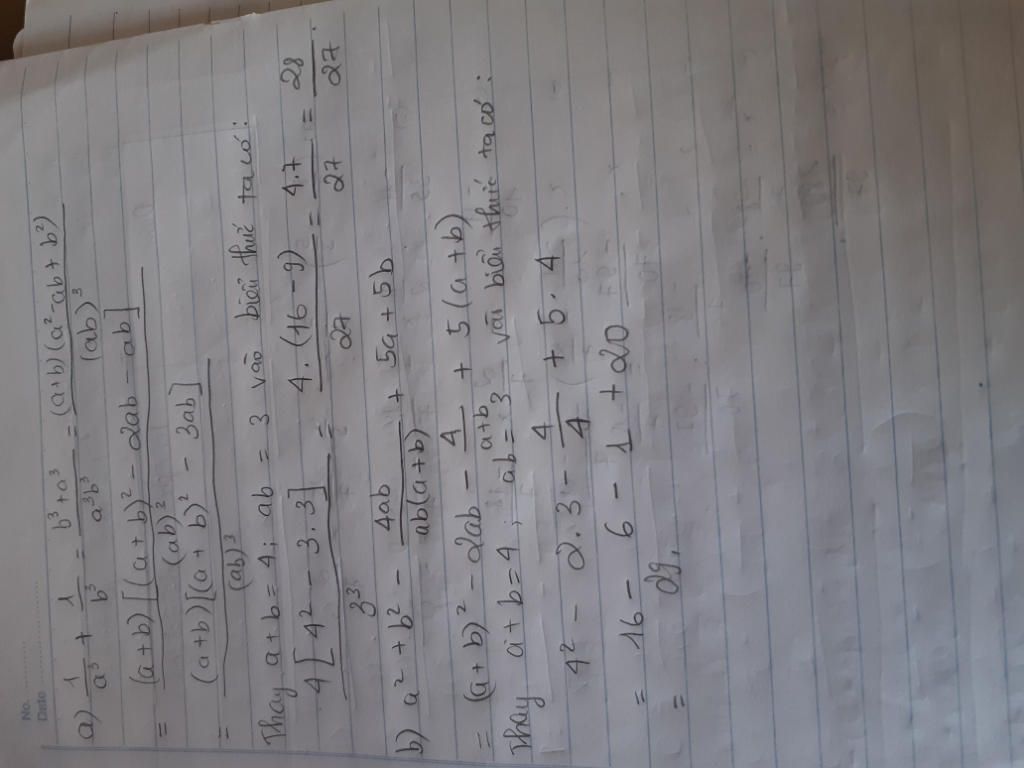 No. ............
Date ............
a) 1/a³ + 1/b³ = (b³ + a³)/(a³b³) = (a+b)(a² - ab + b²)/(ab)³
= (a+b)[(a+b)² - 2ab - ab]/(ab)³
= (a+b)[(a+b)² - 3ab]/(ab)³
Thay a+b = 4; ab = 3 vào biểu thức ta có:
4[4² - 3.3]/3³ = 4.(16 - 9)/27 = 4.7/27 = 28/27.
b) a² + b² - 4ab/(ab(a+b)) + 5a + 5b
= (a+b)² - 2ab - 4/(a+b) + 5(a+b)
Thay a+b = 4; ab = 3 vào biểu thức ta có:
4² - 2.3 - 4/4 + 5.4
= 16 - 6 - 1 + 20
= 29.